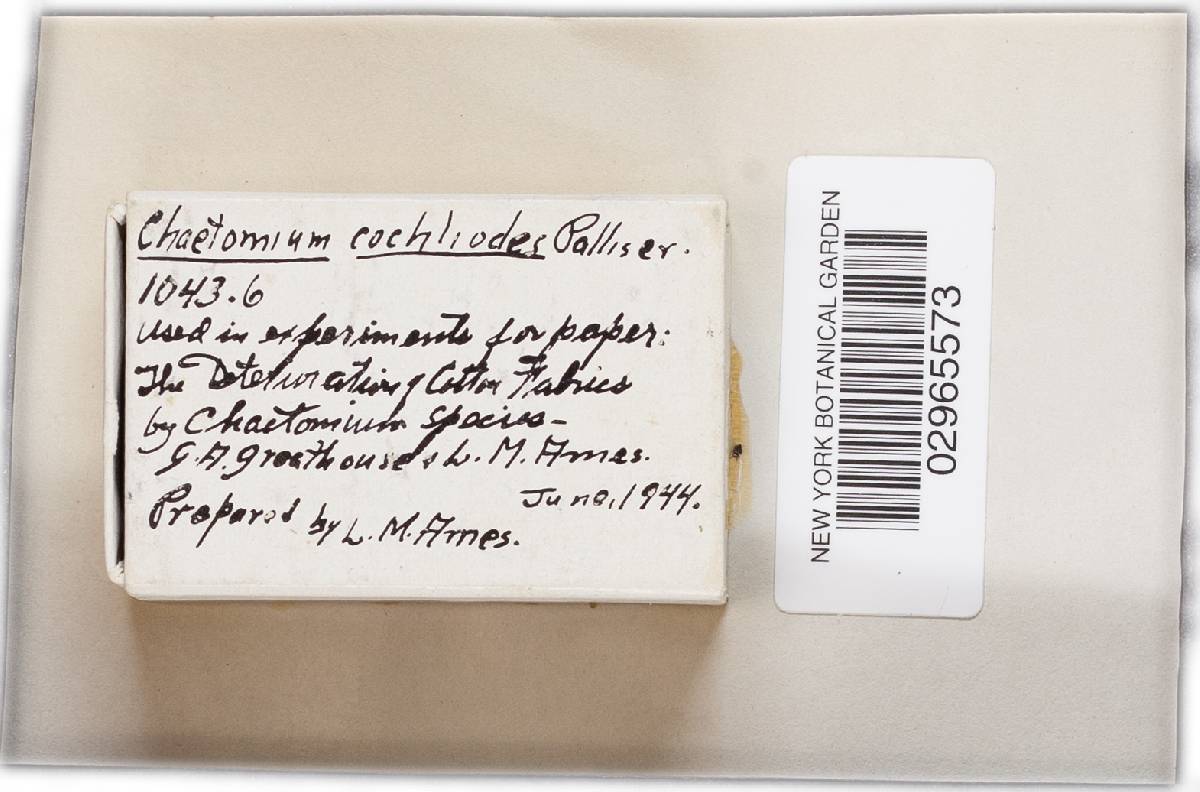 Chaetomium cochliodes Palliser.
1043.6
Used in experiments for paper:
The Deterioration of Cotton Fabrics
by Chaetomium species-
G. A. Greathouse & L. M. Ames.
June, 1944.
Prepared by L. M. Ames.
NEW YORK BOTANICAL GARDEN
02965573